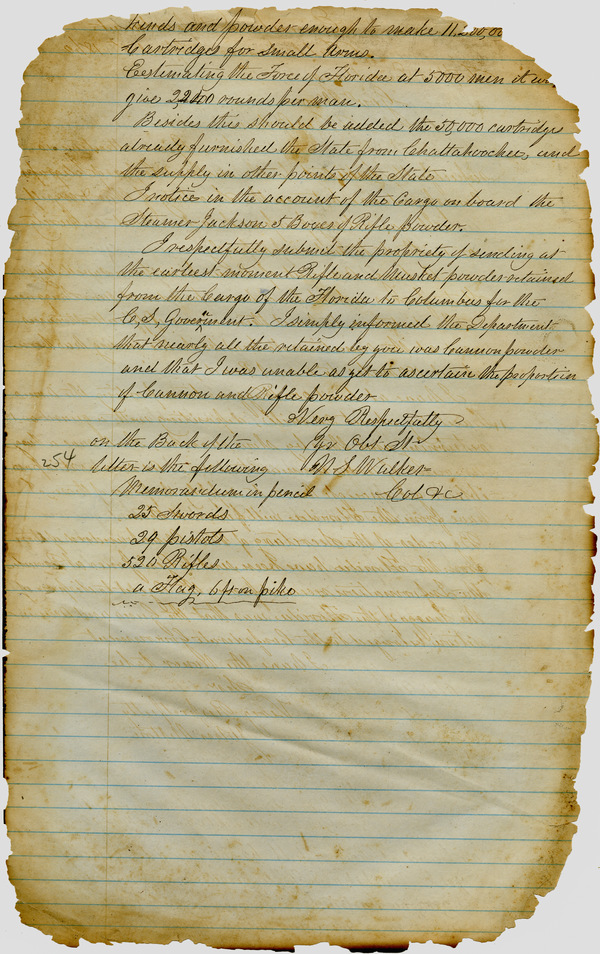 kinds and powder enough to make 11,200,00
Cartridges for small Arms.
Eestimating the Force of Florida at 5000 men it wo
give 22400 rounds per man.
Besides this should be added the 50,000 cartridge
already furnished the State from Chattahoochee, and
the supply in other points of the State
I notice in the account of the Cargo on board the
Steamer Jackson 5 Boxes of Rifle powder.
I respectfully submit the propriety of sending at
the earliest moment Rifle and Musket powder retained
from the Cargo of the Florida to Columbus for the
C, S, Government. I simply informed the Department
that nearly all the retained by you was Cannon powder
and that I was unable as yet to ascertain the proportion
of Cannon and Rifle powder
Very Respectfully
Yr Obt St
W S Walker
Col &c
on the Back of the
254 letter is the following
Memorandum in pencil
25 Swords
29 pistols
520 Rifles
a Flag, 6 ft on pike